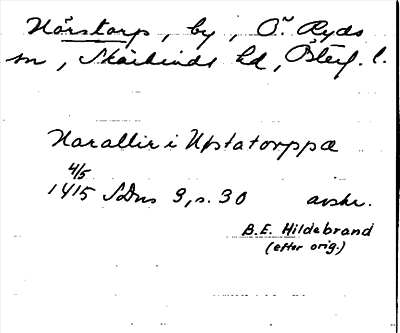 Norstorp, by, Ö. Ryds
sn, Skärkinds hd, Österg. l.
Narallir i Upstatorppa
4/5
1415 SDns 3, s. 30 avskr.
B.E. Hildebrand
(efter orig.)